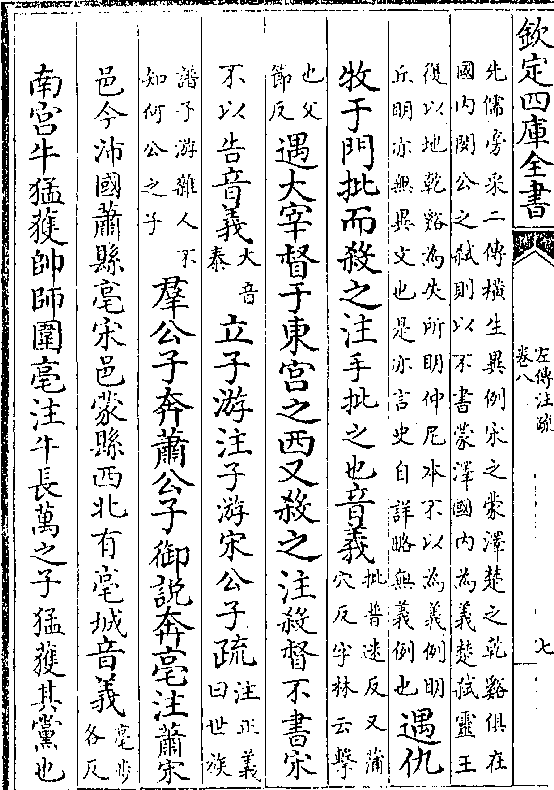 欽定四庫全書
左傳注疏
卷八
七
先儒旁采二傳橫生異例宋之蒙澤楚之乾谿俱在
國內閔公之弑則以不書蒙澤國內為義楚弑靈王
復以地乾谿為失所明仲尼本不以為義例明
丘明亦無異文也是亦言史自詳略無義例也
遇仇
牧于門批而殺之注手批之也音義
批普迷反又蒲
穴反字林云擊
也父
節反
遇大宰督于東宮之西又殺之注殺督不書宋
不以告音義
大音
泰
立子游注子游宋公子疏
注正義
曰世族
譜子游雜人不
知何公之子
羣公子奔蕭公子御說奔亳注蕭宋
邑今沛國蕭縣亳宋邑蒙縣西北有亳城音義
亳步
各反
南宮牛猛獲帥師圍亳注牛長萬之子猛獲其黨也